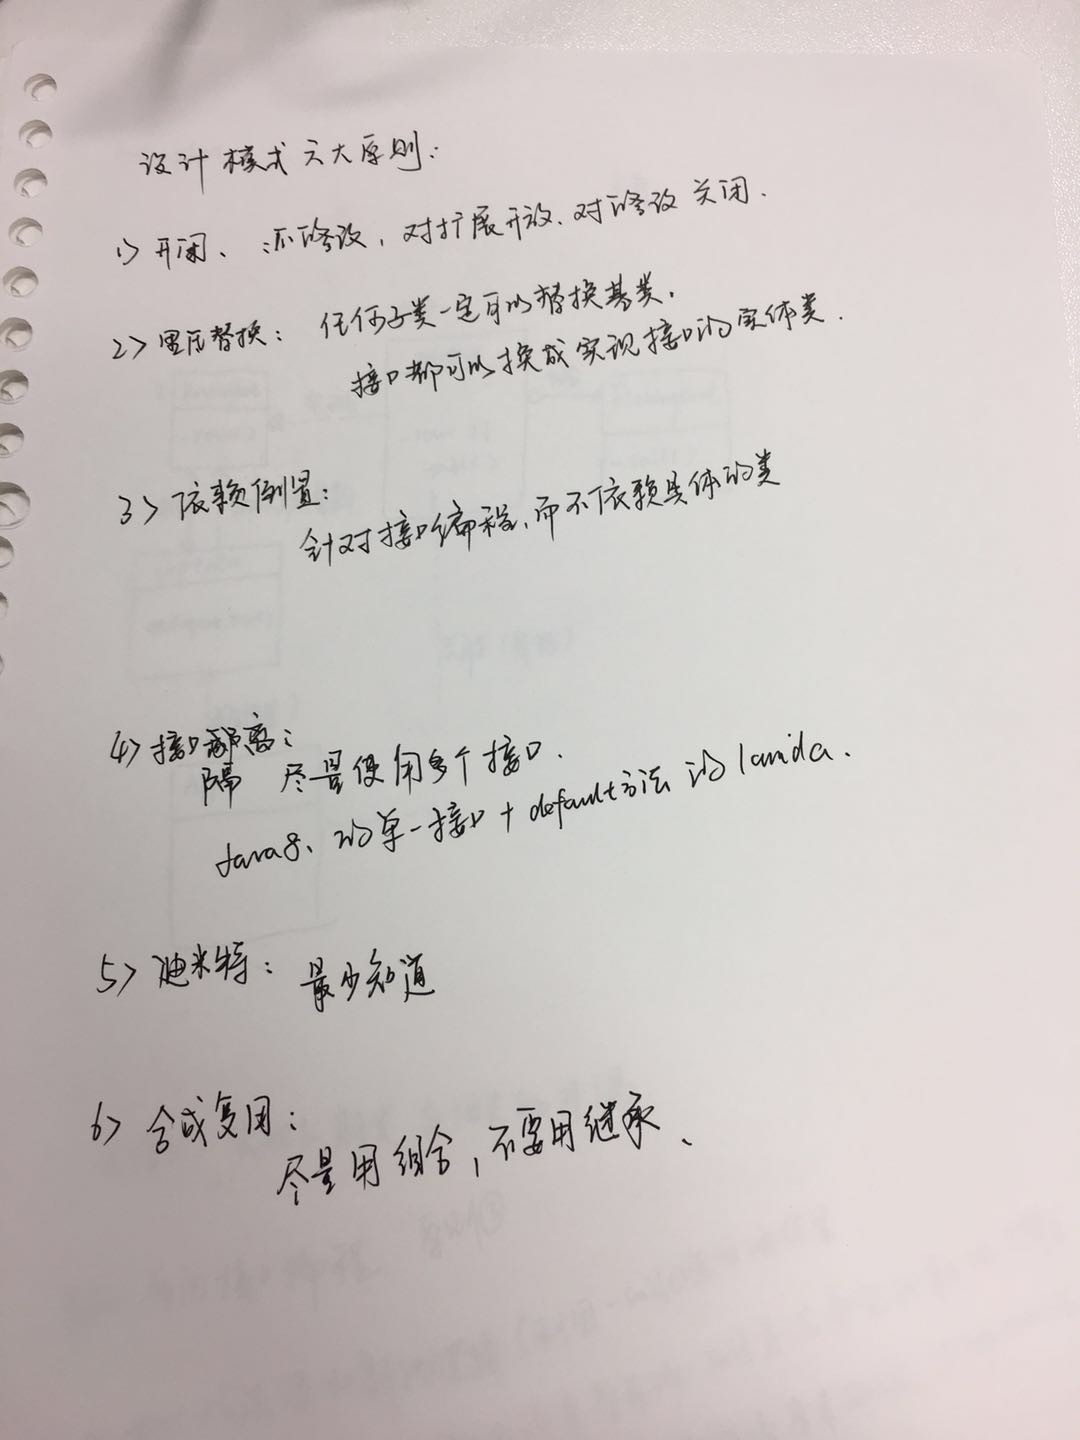 设计模式六大原则:
1> 开闭、 :不修改, 对扩展开放、对修改关闭.
2> 里氏替换: 任何子类一定可以替换基类.
接口都可以换成实现接口的实体类.
3> 依赖倒置:
针对接口编程,而不依赖具体的类
4> 接口离:
隔 尽量使用多个接口.
Java8、的单一接口+default方法的lamda.
5> 迪米特: 最少知道
6> 合成复用:
尽量用组合,不要用继承、